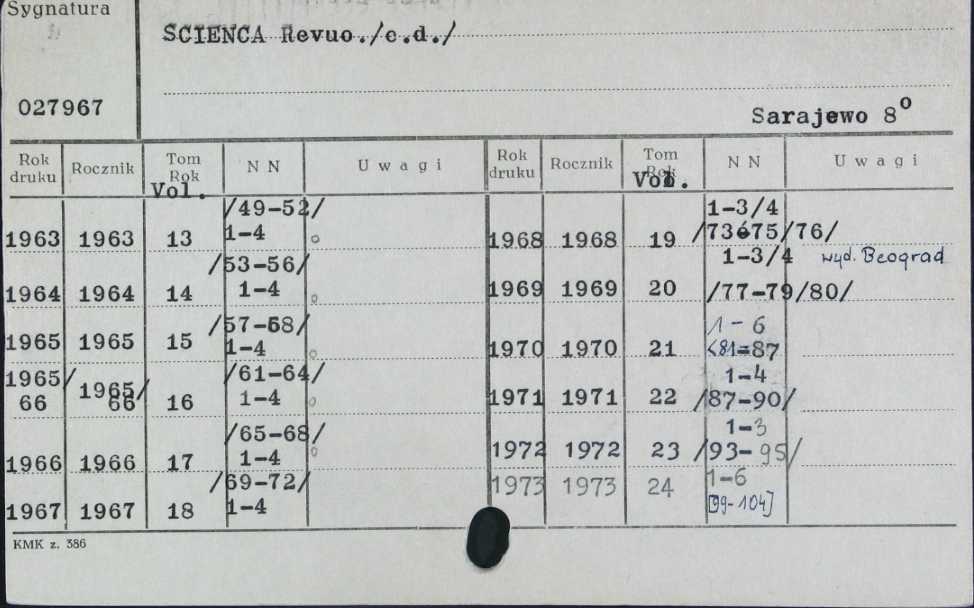 Sygnatura
SCIENCA Revuo./c.d./
027967
Sarajewo 8°
Rok druku Rocznik Tom Rok Vol. N N U w a g i Rok druku Rocznik Tom Rok Vol. N N U w a g i
/49-52/
1963 1963 13 1-4
/53-56/
1964 1964 14 1-4
/57-68/
1965 1965 15 1-4
/61-64/
1965/66 1965/66 16 1-4
/65-68/
1966 1966 17 1-4
/69-72/
1967 1967 18 1-4
1-3/4
1968 1968 19 /73é75/76/
1-3/4 wyd. Beograd
1969 1969 20 /77-79/80/
1-6
1970 1970 21 <81-87
1-4
1971 1971 22 /87-90/
1-3
1972 1972 23 /93-95/
1973 1973 24 1-6
[99-104]
KMK z. 386